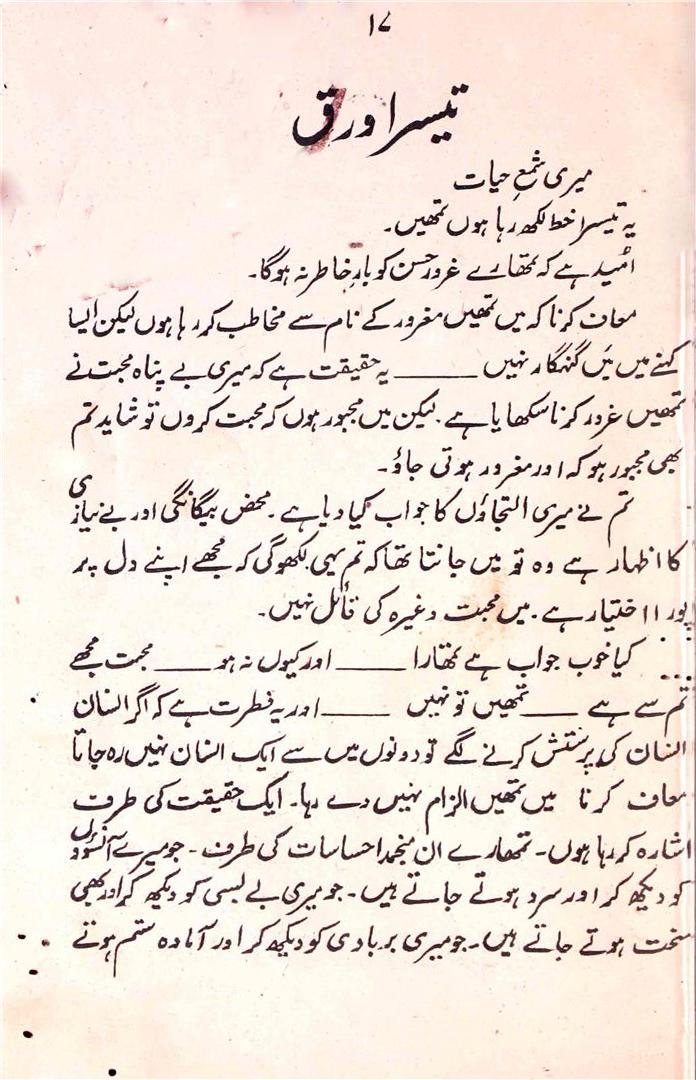 ۱۷
تیسرا ورق
میری شمعِ حیات
یہ تیسرا خط لکھ رہا ہوں تمھیں۔
امّید ہے کہ تمھارے غرورِ حسن کو بارِ خاطر نہ ہوگا۔
معاف کرنا کہ میں تمھیں مغرور کے نام سے مخاطب کر رہا ہوں لیکن ایسا
کہنے میں میں گنہگار نہیں ــــــــــ یہ حقیقت ہے کہ میری بے پناہ محبت نے
تمھیں غرور کرنا سکھایا ہے۔ لیکن میں مجبور ہوں کہ محبت کروں تو شاید تم
بھی مجبور ہو کہ اور مغرور ہوتی جاؤ۔
تم نے میری التجاؤں کا جواب کیا دیا ہے۔ محض بیگانگی اور بے نیازی
کا اظہار ہے وہ تو میں جانتا تھا کہ تم یہی لکھو گی کہ مجھے اپنے دل پر
پورا اختیار ہے۔ میں محبت وغیرہ کی قائل نہیں۔
کیا خوب جواب ہے تمھارا ــــــــ اور کیوں نہ ہو ــــــــ محبت مجھے
تم سے ہے ــــــــ تمھیں تو نہیں ــــــــ اور یہ فطرت ہے کہ اگر انسان
انسان کی پرستش کرنے لگے تو دونوں میں سے ایک انسان نہیں رہ جاتا
معاف کرنا میں تمھیں الزام نہیں دے رہا۔ ایک حقیقت کی طرف
اشارہ کر رہا ہوں۔ تمھارے ان منجمد احساسات کی طرف۔ جو میرے آنسوؤں
کو دیکھ کر اور سرد ہوتے جاتے ہیں۔ جو میری بے بسی کو دیکھ کر اور بھی
سخت ہوتے جاتے ہیں۔ جو میری بربادی کو دیکھ کر اور آمادہ ستم ہوتے